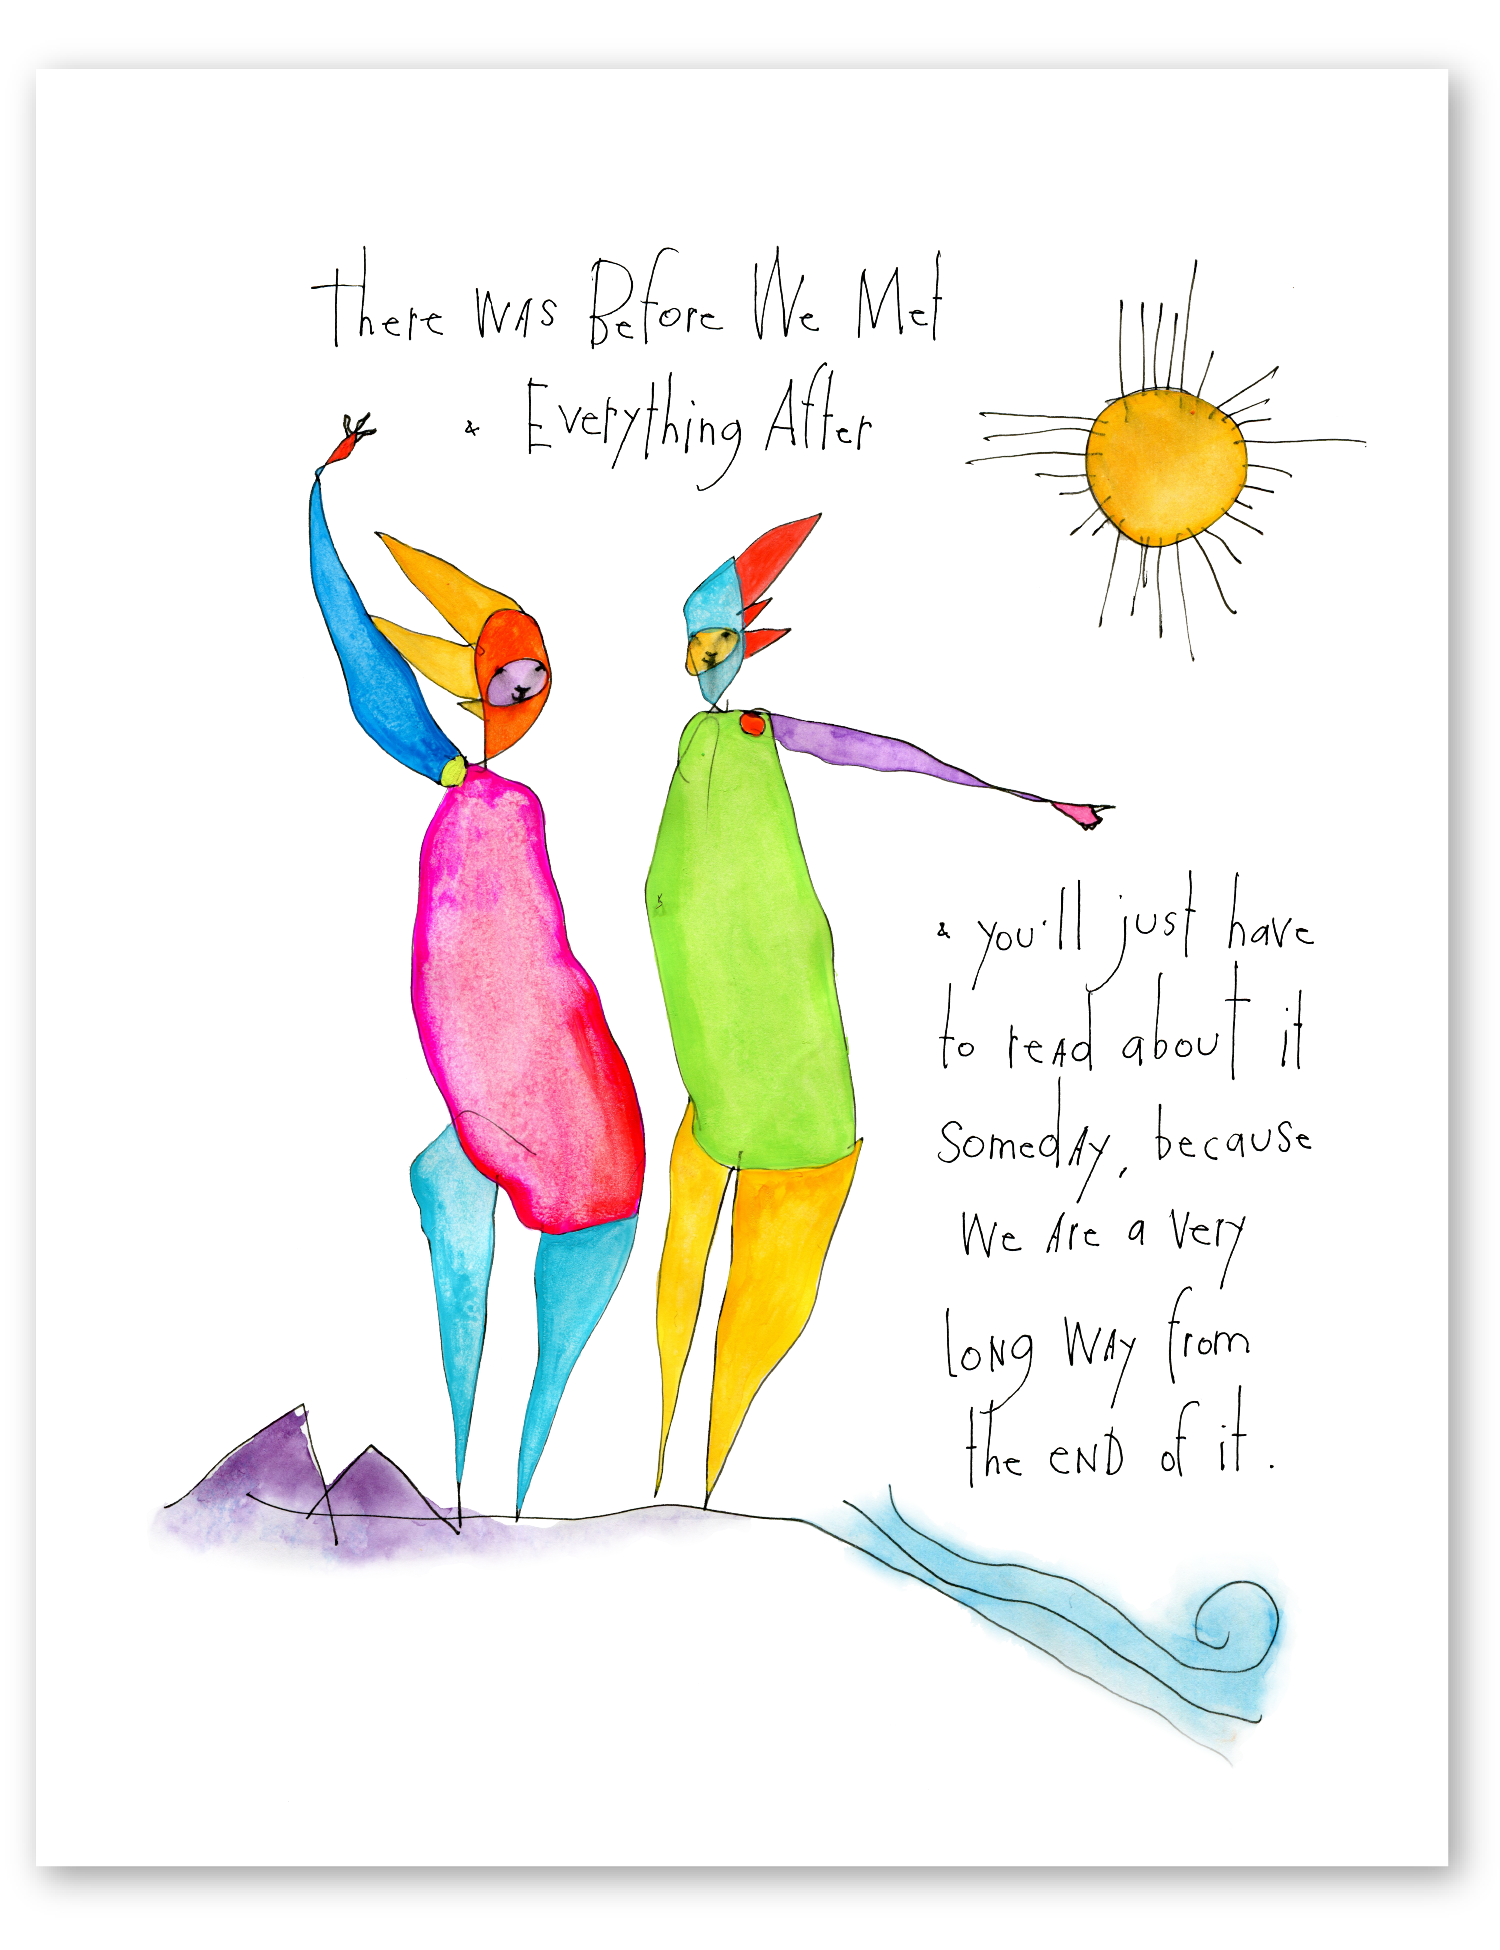 There was Before We Met
& Everything After
& you'll just have
to read about it
someday, because
We Are a very
long way from
the END of it.